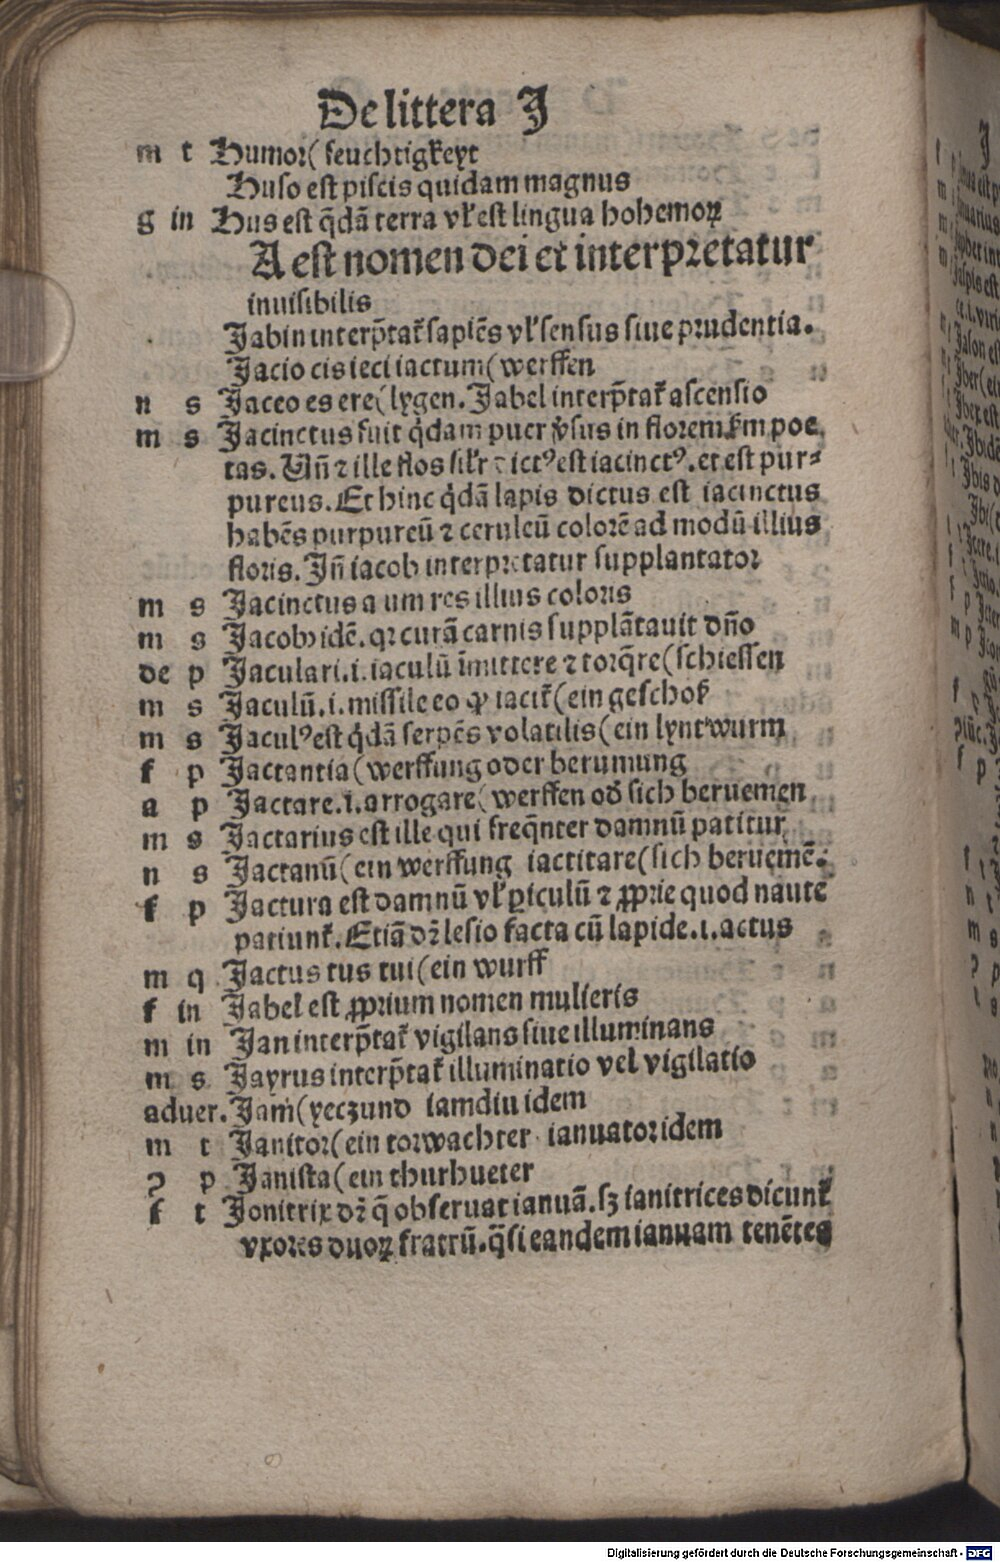 De littera J
m t Humor( feuchtigkeyt
Huso est piscis quidam magnus
g in Hus est q̄dā terra vl̓ est lingua bohemoꝝ
A est nomen dei et interpretatur
inuisibilis
Jabin interp̄tat̓ sapiēs vl̓ sensus siue prudentia.
Jacio cis ieci iactum( werffen
n s Jaceo es ere( lygen. Jabel interp̄tat̓ ascensio
m s Jacinctus fuit q̇dam puer v̓sus in florem km poe
tas. Vn̄ ⁊ ille flos sil̓r dictꝰ est iacinctꝰ. et est pur⸗
pureus. Et hinc q̇dā lapis dictus est iacinctus
habēs purpureū ⁊ ceruleū colorē ad modū illius
floris. Jn̄ iacob interpretatur supplantator
m s Jacinctus a um res illius coloris
m s Jacob idē. qꝛ curā carnis supplātauit dn̄o
de p Jaculari .i. iaculū īmittere ⁊ torq̄re( schiessen
m s Jaculū .i. missile eo ꝙ iacit̓( ein geschoß
m s Jaculꝰ est q̇dā serpēs volatilis( ein lyntwurm
f p Jactantia( werffung oder berumung
a p Jactare .i. arrogare( werffen od̓ sich beruemen
m s Jactarius est ille qui freq̄nter damnū patitur
n s Jactanū( ein werffung iactitare( sich beruemē.
f p Jactura est damnū vl̓ ꝑiculū ⁊ ꝓprie quod naute
patiunt̓. Etiā dꝛ̄ lesio facta cū lapide .i. actus
m q Jactus tus tui( ein wurff
f in Jabel est ꝓprium nomen mulieris
m in Jan interp̄tat̓ vigilans siue illuminans
m s Jayrus interp̄tat̓ illuminatio vel vigilatio
aduer. Jam( yeczund iamdiu idem
m t Janitor( ein torwachter ianuator idem
ꝯ p Janista( ein thurhueter
f t Jonitrix dꝛ̄ q̄ obseruat ianuā. sꝫ ianitrices dicunt̓
vxores duoꝝ fratrū. q̄si eandem ianuam tenētes
Digitalisierung gefördert durch die Deutsche Forschungsgemeinschaft - DFG